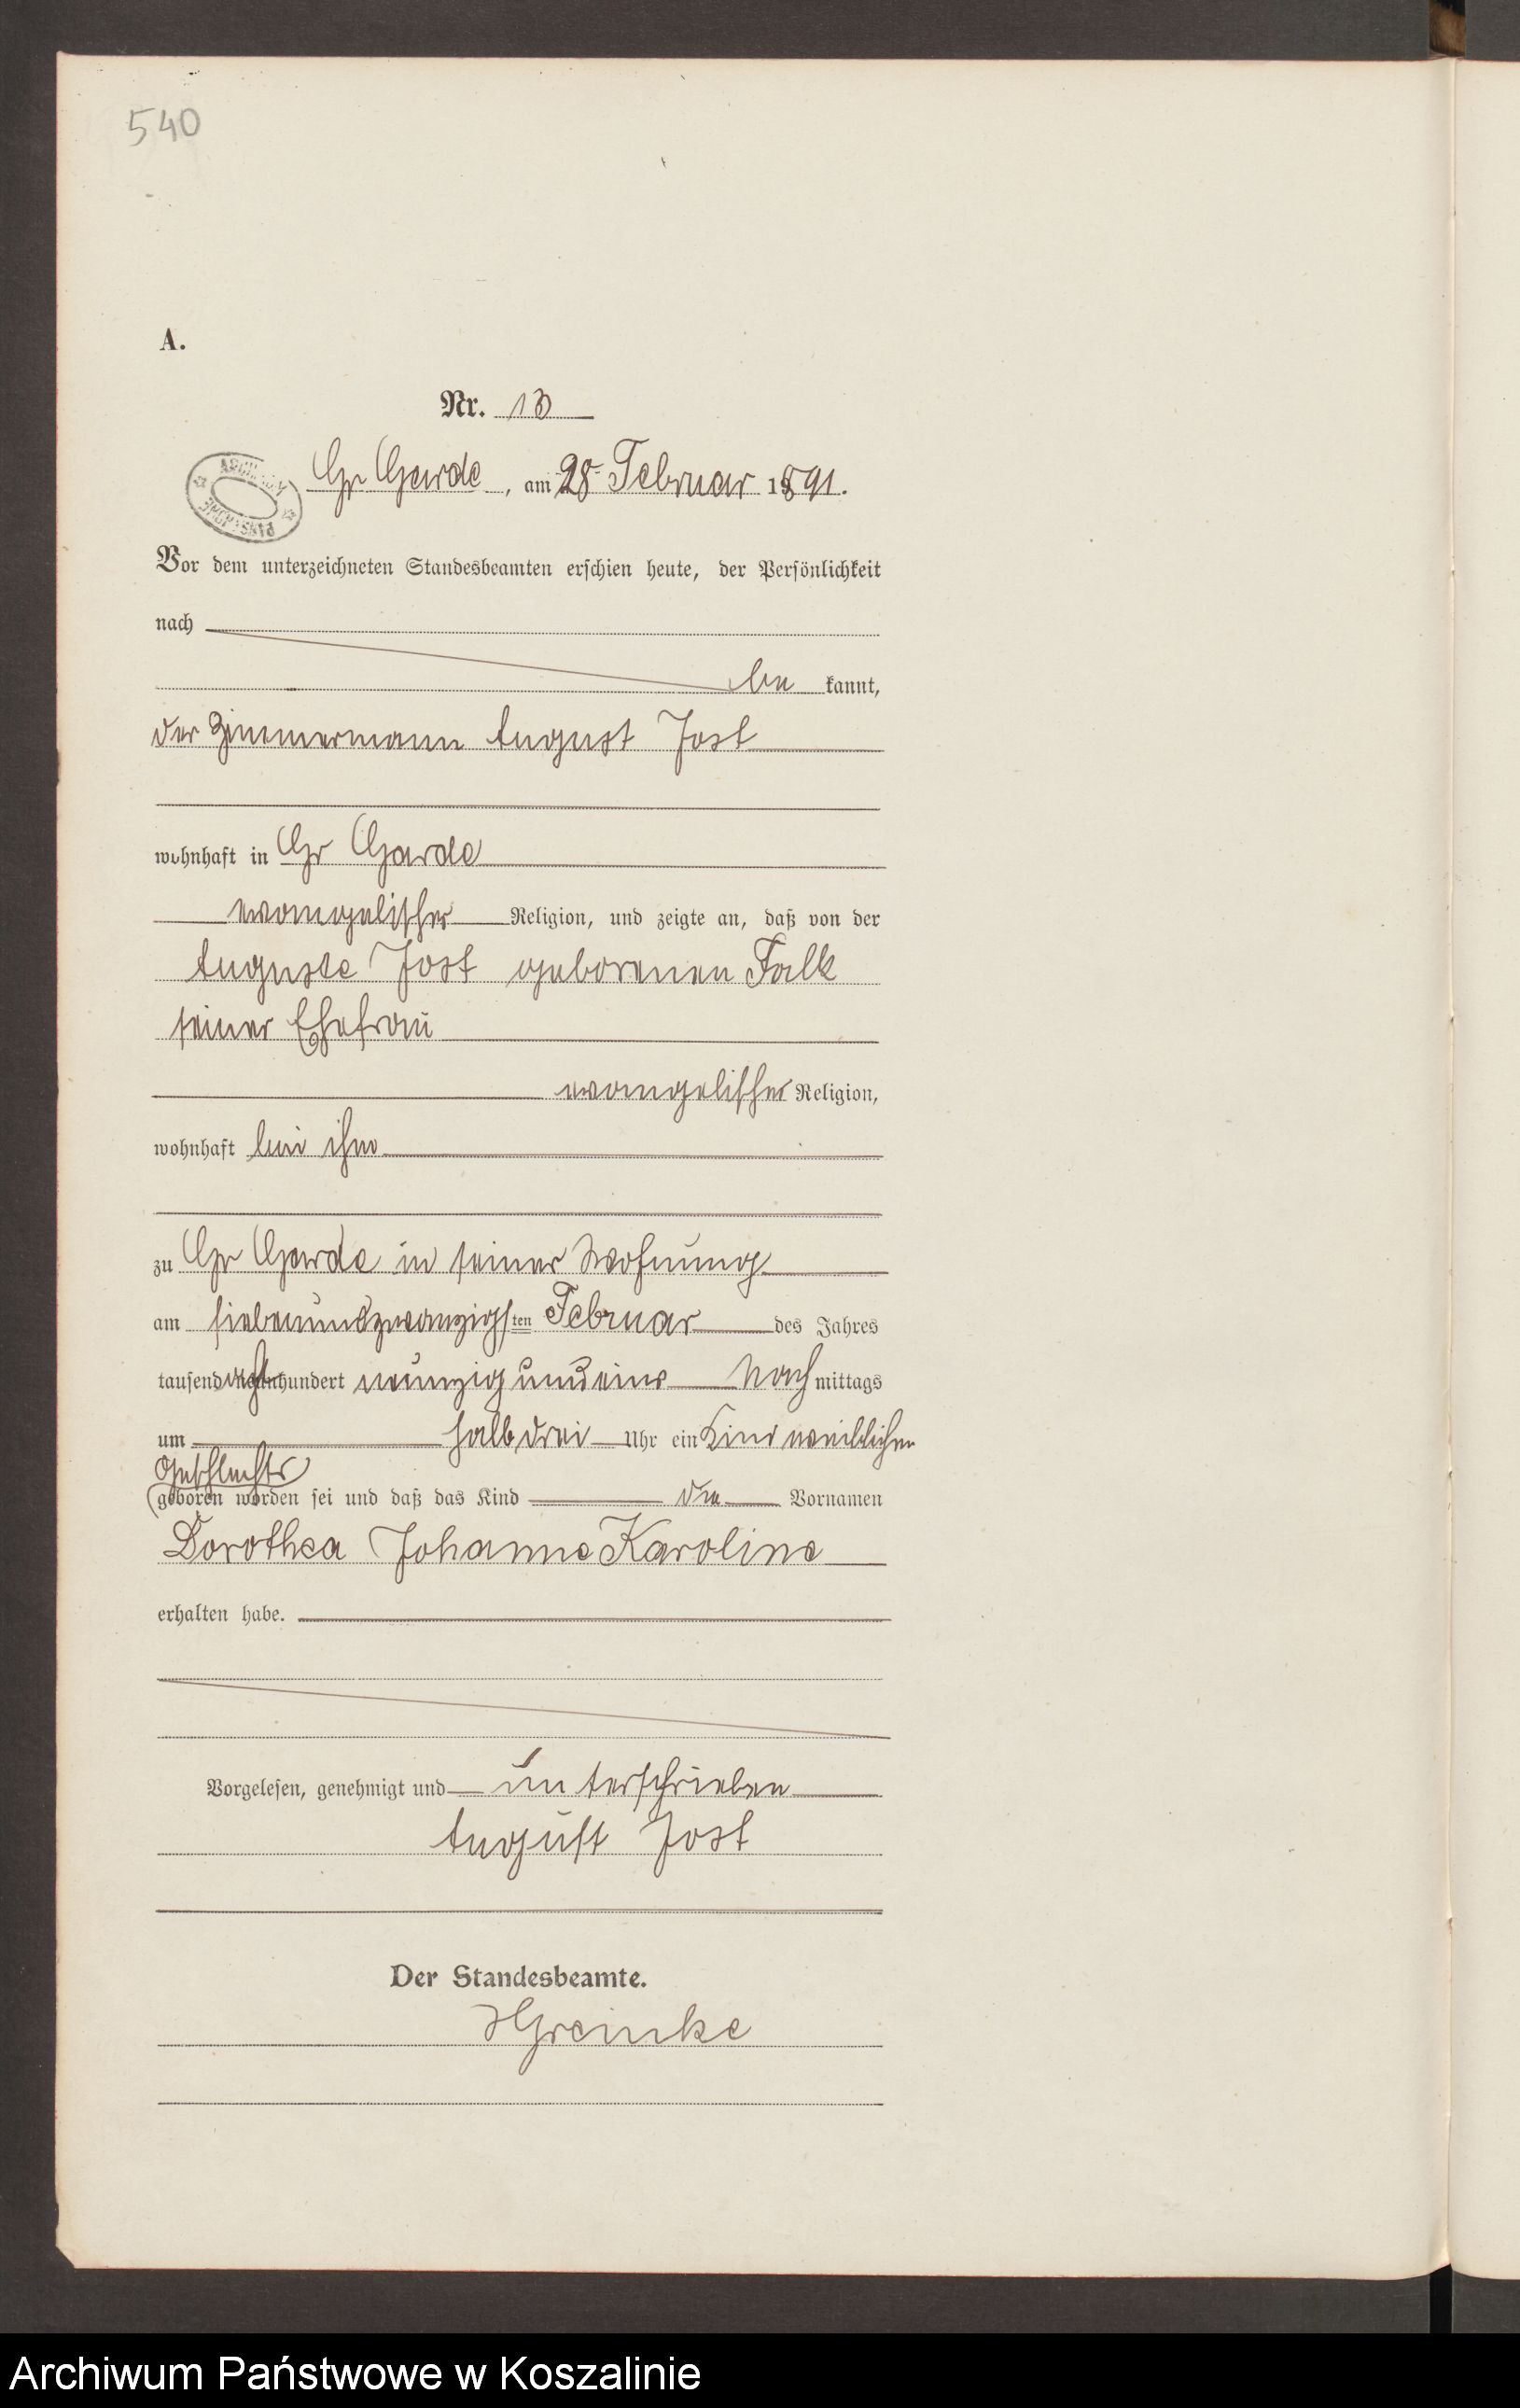 540
A.
Nr. 13
ARCHIWUM
PAŃSTWOWE
Gr Garde, am 28 Februar 1891.
Vor dem unterzeichneten Standesbeamten erschien heute, der Persönlichkeit
nach
be kannt,
der Zimmermann August Jost
wohnhaft in Gr Garde
evangelischer Religion, und zeigte an, daß von der
Auguste Jost geborenen Falk
seiner Ehefrau
evangelischer Religion,
wohnhaft bei ihm
zu Gr Garde in seiner Wohnung
am siebenundzwanzigsten Februar des Jahres
tausend acht hundert neunzig und eins Nach mittags
um halb drei Uhr ein Kind weiblichen
Geschlechts
geboren worden sei und daß das Kind die Vornamen
Dorothea Johanne Karoline
erhalten habe.
Vorgelesen, genehmigt und unterschrieben
August Jost
Der Standesbeamte.
HGreinke
Archiwum Państwowe w Koszalinie